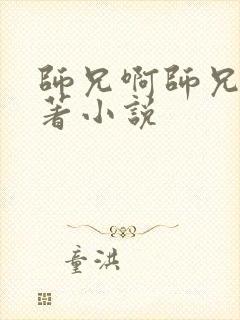 師兄啊師兄
著小説
童洪